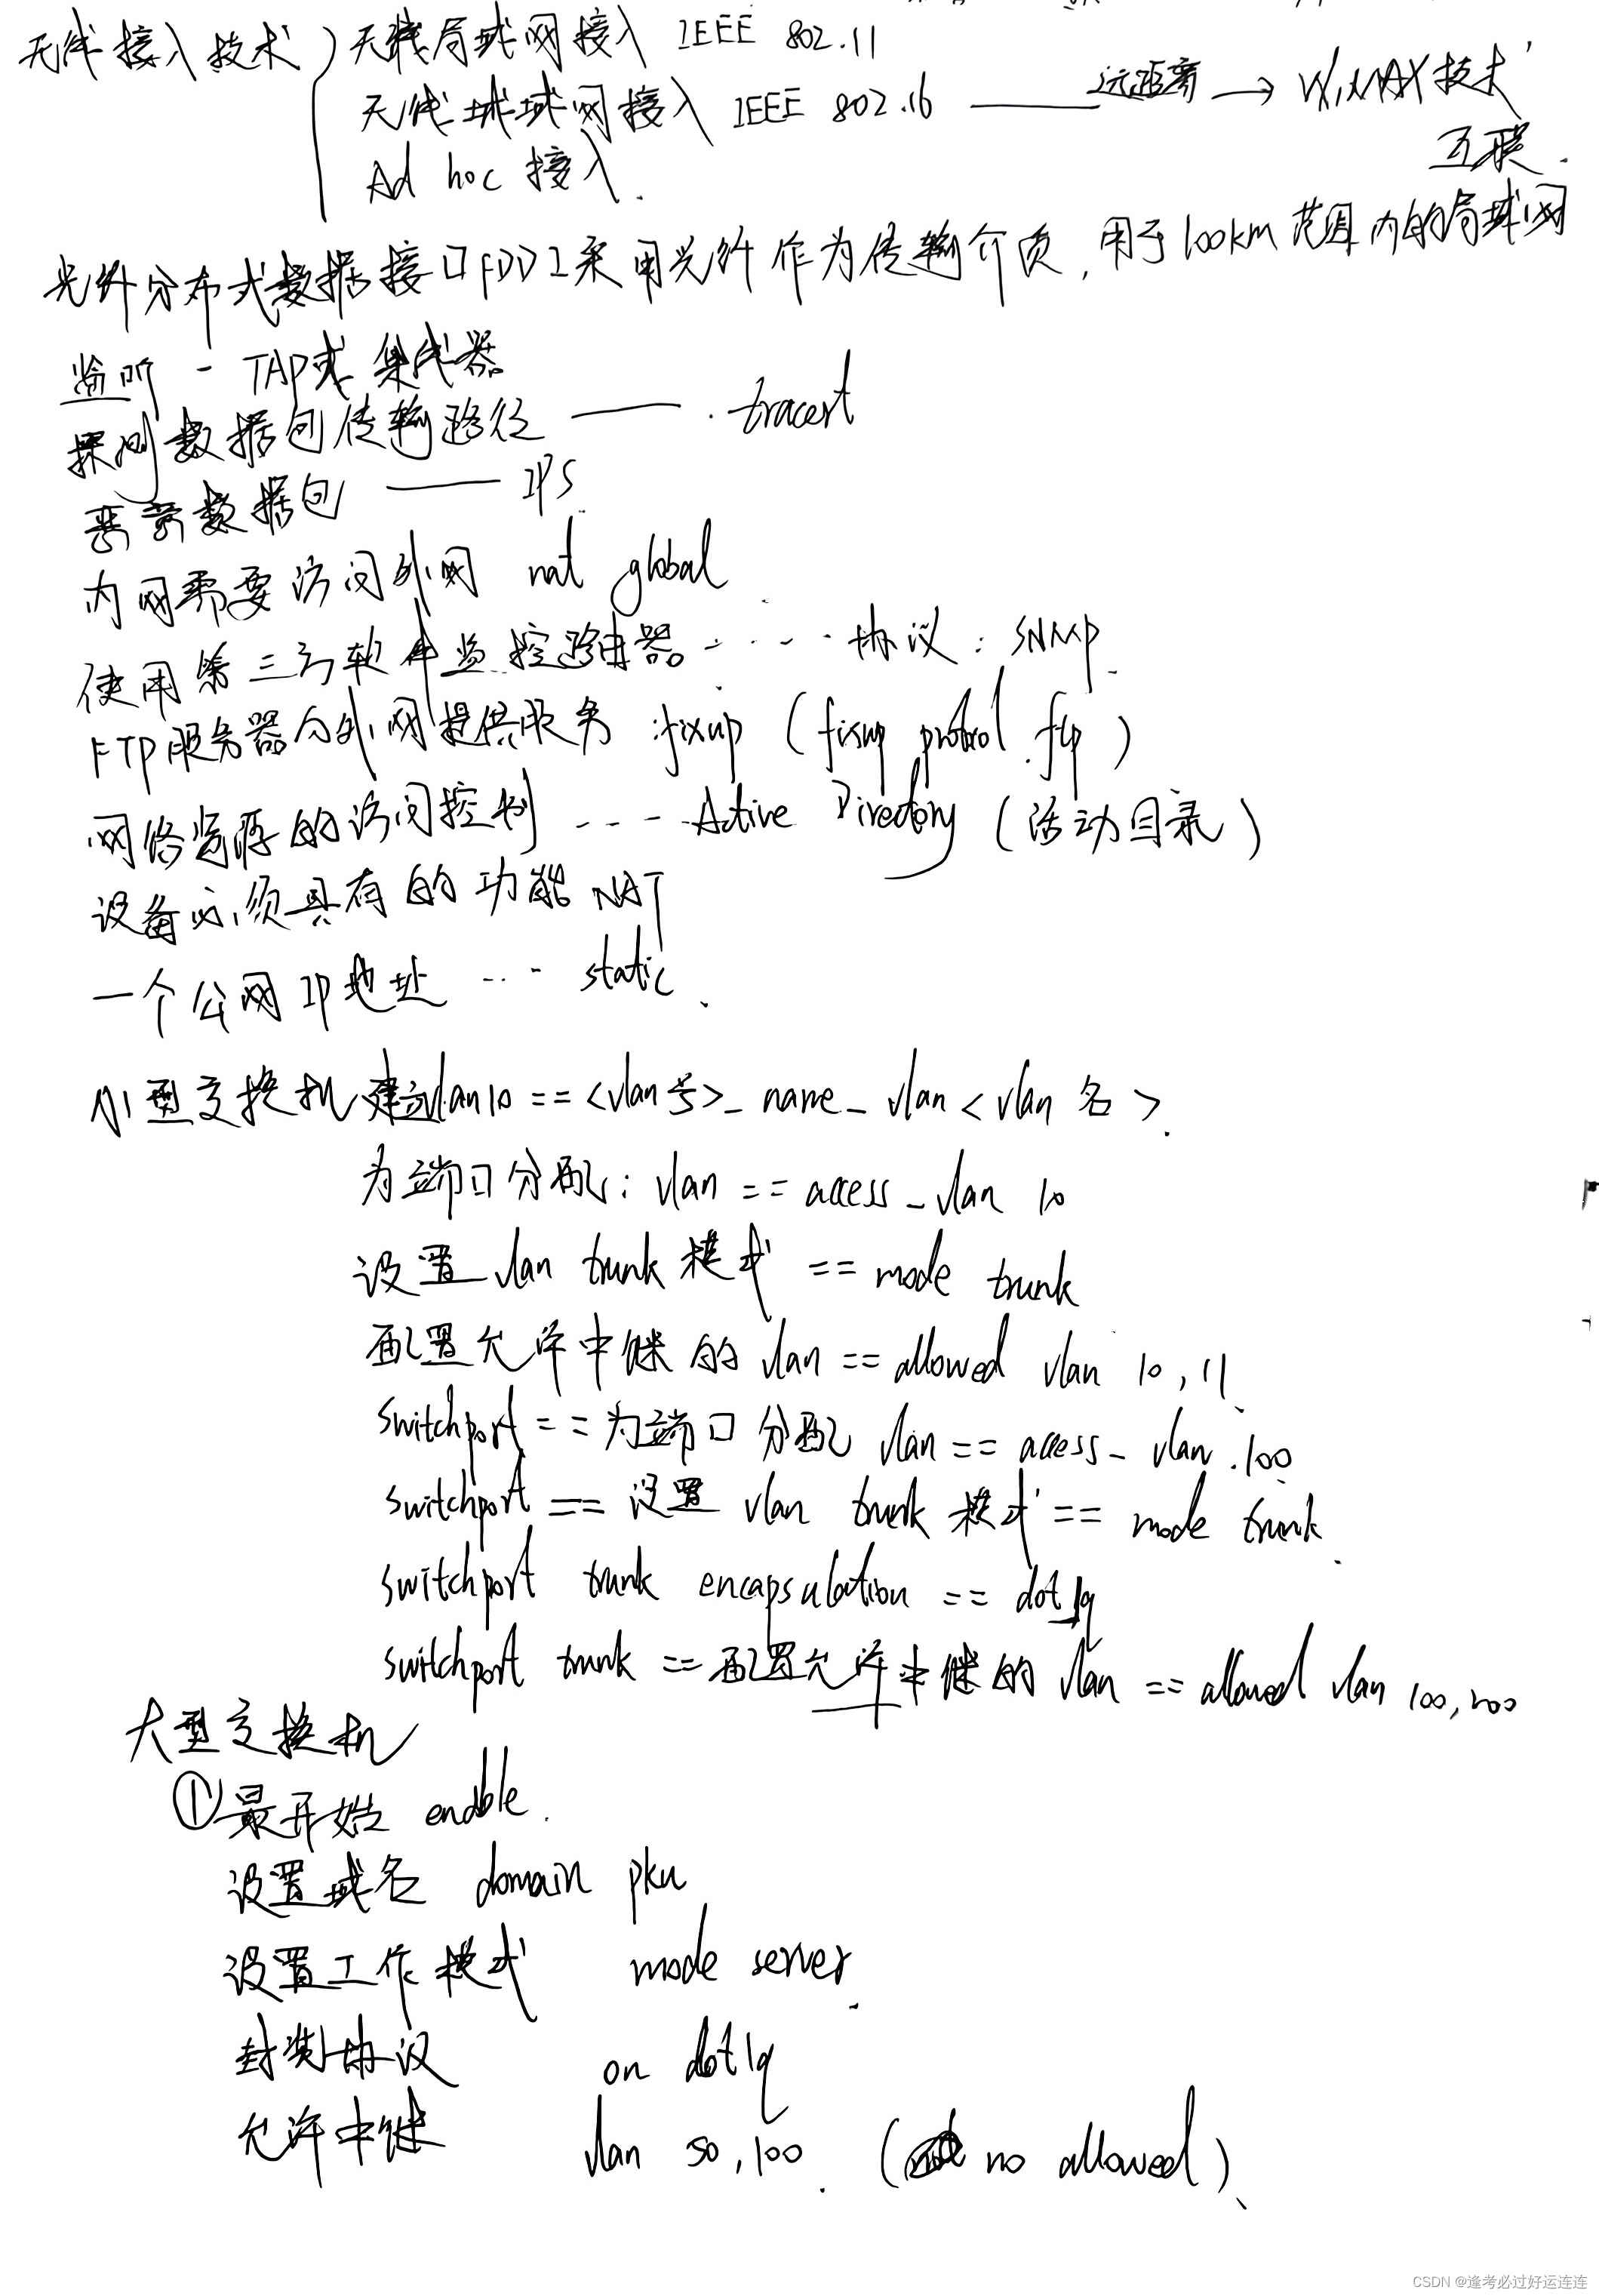 无线接入技术 无线局域网接入 IEEE 802.11
无线城域网接入 IEEE 802.16 —— 远距离 → WiMAX技术
互联.
Ad hoc 接入.
光纤分布式数据接口FDDI采用光纤作为传输介质,用于100km范围内的局域网
监听 - TAP或集线器
探测数据包传输路径 —— tracert
丢弃数据包 —— IPS
内网需要访问外网 nat global
使用第三方软件监控路由器 ---- 协议: SNMP
FTP服务器向外网提供服务 :fixup (fixup protocol ftp)
网络资源的访问控制 ---- Active Directory (活动目录)
设备必须具有的功能 NAT
一个公网IP地址 ... static
小型交换机 建立vlan10 == <vlan号>_name_vlan<vlan名>
为端口分配: vlan == access_vlan 10
设置vlan trunk模式 == mode trunk
配置允许中继的vlan == allowed vlan 10,11
switchport == 为端口分配vlan == access_vlan 100
switchport == 设置 vlan trunk 模式 == mode trunk
switchport trunk encapsulation == dot1q
switchport trunk == 配置允许中继的vlan == allowed vlan 100,200
大型交换机
①最开始 enable.
设置域名 domain pku
设置工作模式 mode server
封装协议 on dot1q
允许中继 vlan 50,100 ( no allowed)
CSDN @逢考必过好运连连